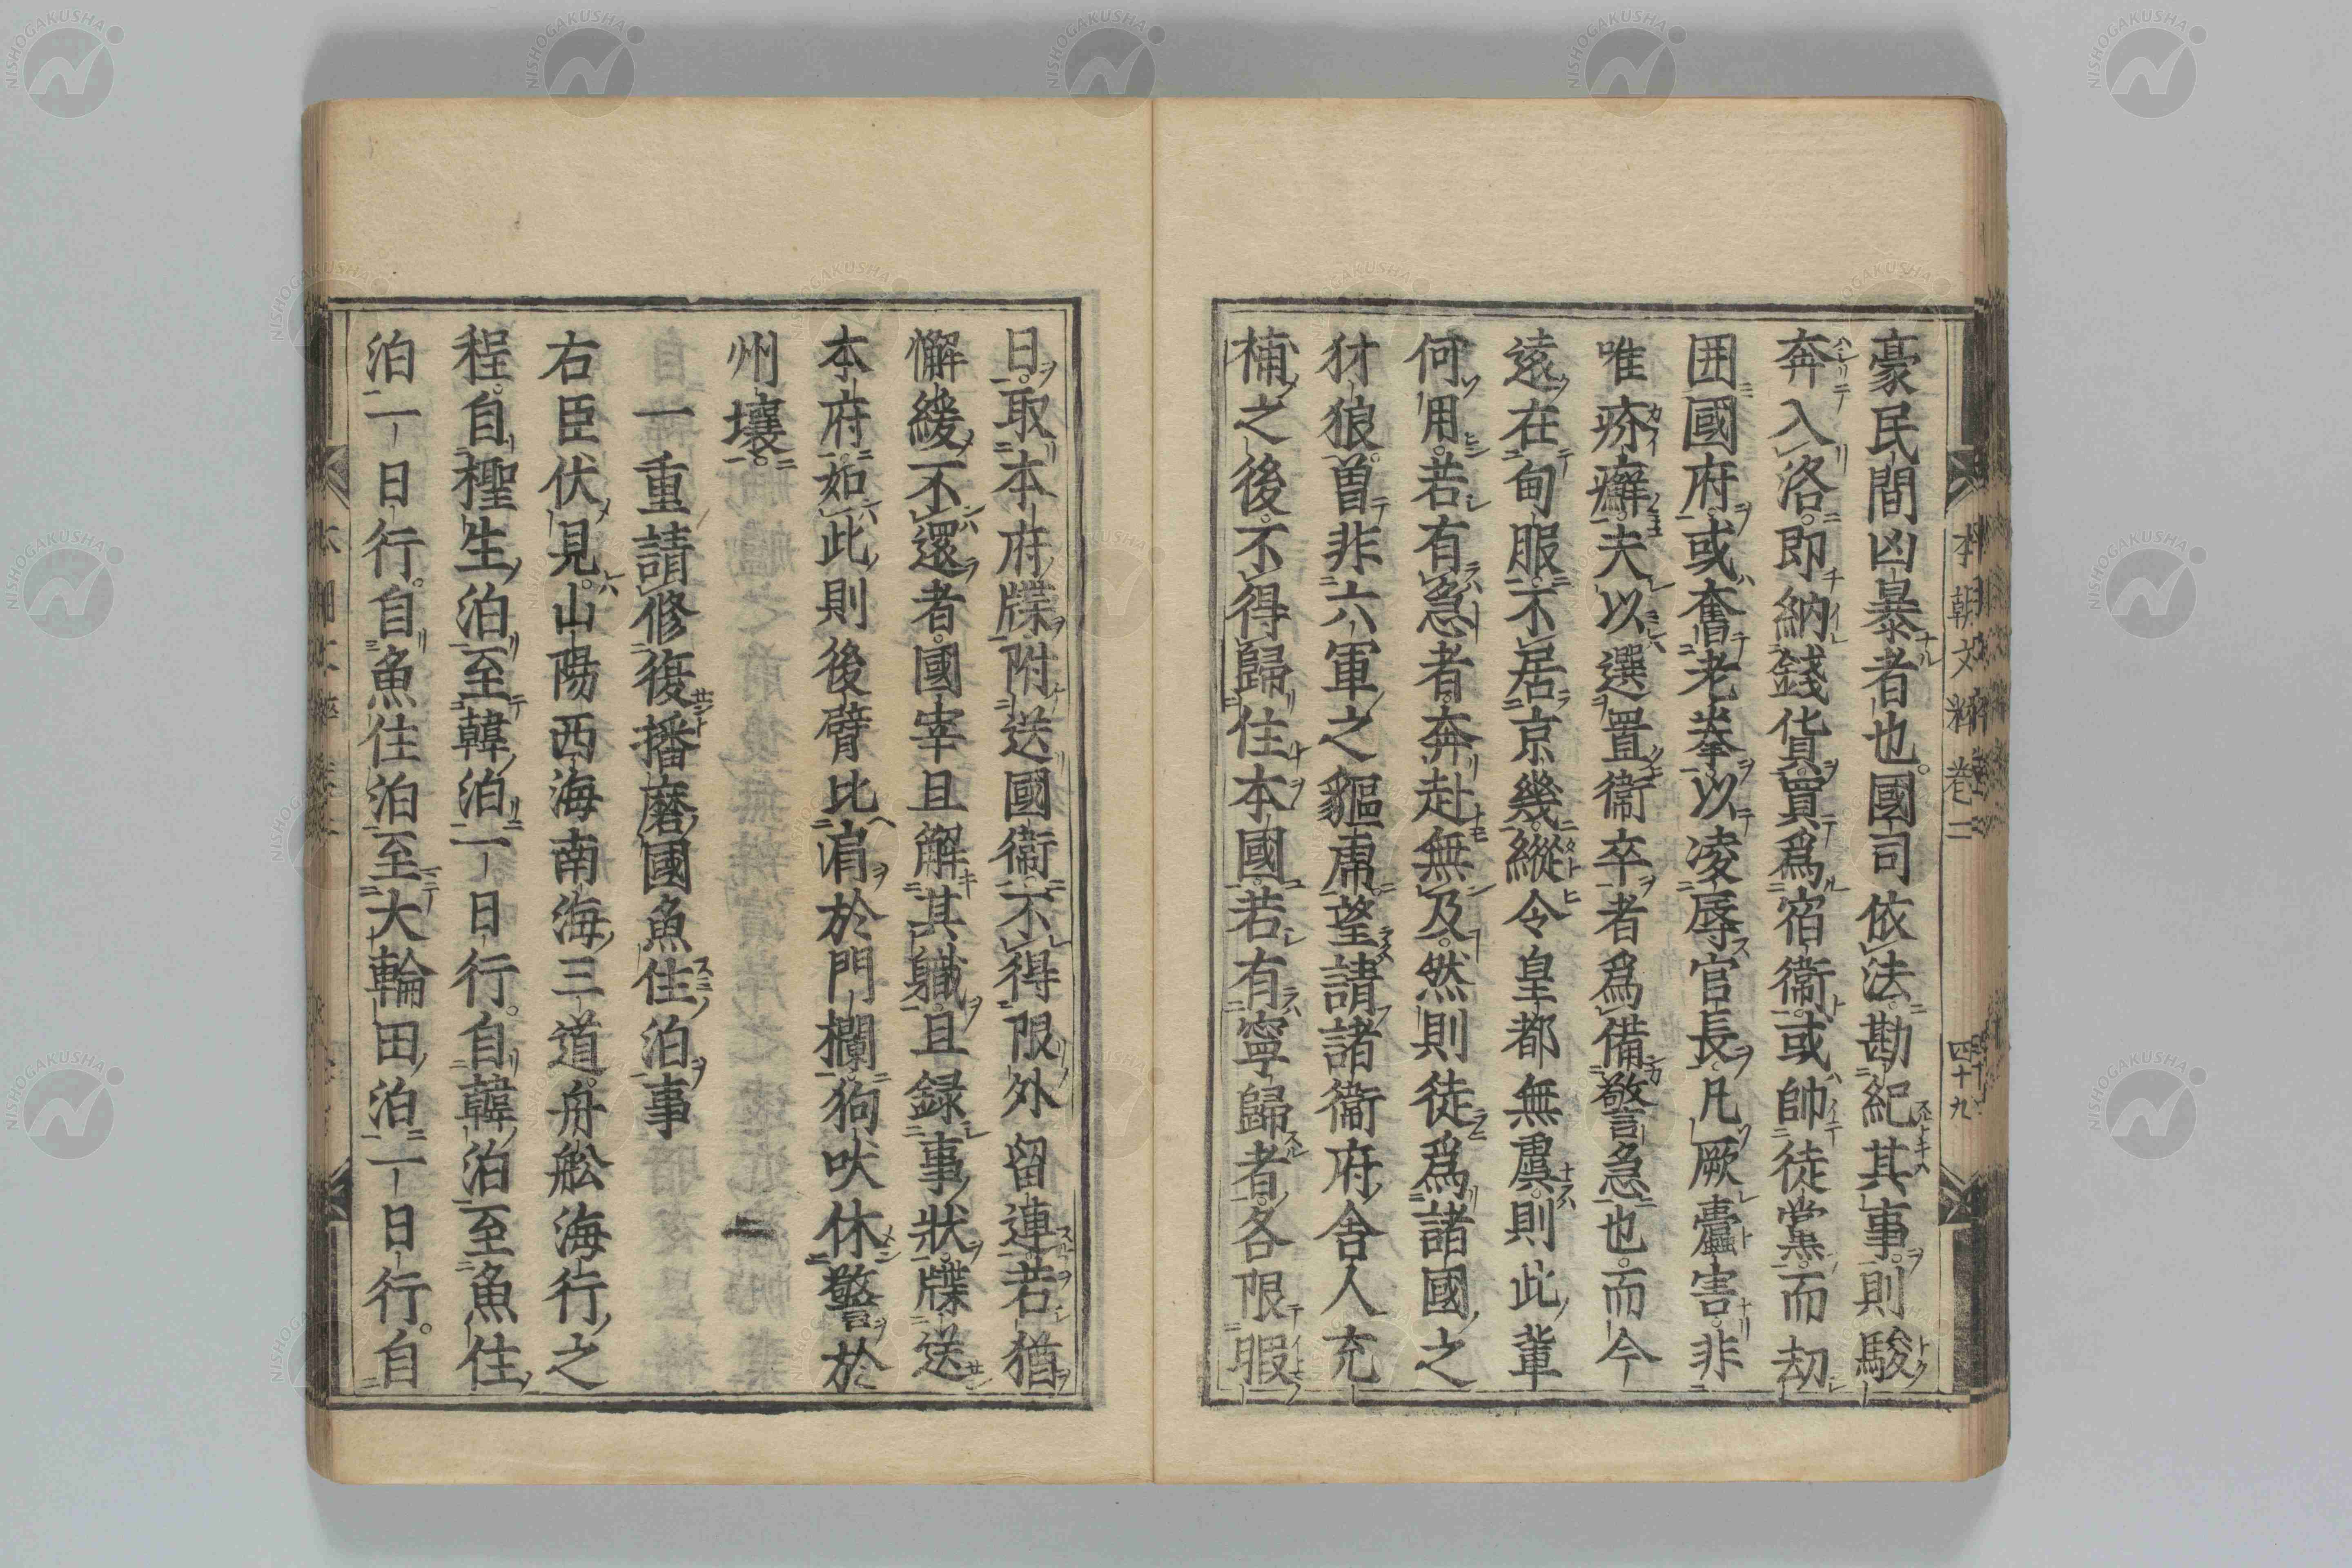 豪民間凶暴者也。國司依法勘紀其事。則駿
奔入洛。即納錢貨。買爲宿衞。或帥徒黨。而劫
囲國府。或奮老拳。以凌辱官長。凡厥蠹害。非
唯疥癬。夫以選置衞卒者爲備警急也。而今
遠在甸服。不居京幾。縱令皇都無虞。則此輩
何用。若有急者。奔赴無及。然則徒爲諸國之
豺狼。曽非六軍之貙虎。望請諸衞府舍人充
補之後。不得歸住本國。若有寧歸者。各限暇
本朝文粹 卷二
四十九
日。取本府牒。附送國衞。不得限外留連。若猶
懈緩不還者。國宰且解其軄。且録事狀。牒送
本府。如此則後臂比肩於門欄。狗吠休警於
州壤。
一重請修復播磨國魚住泊事
右臣伏見。山陽西海南海三道。舟舩海行之
程。自檉生泊至韓泊一日行。自韓泊至魚住
泊一日行。自魚住泊至大輪田泊一日行。自
NISHOGAKUSHA